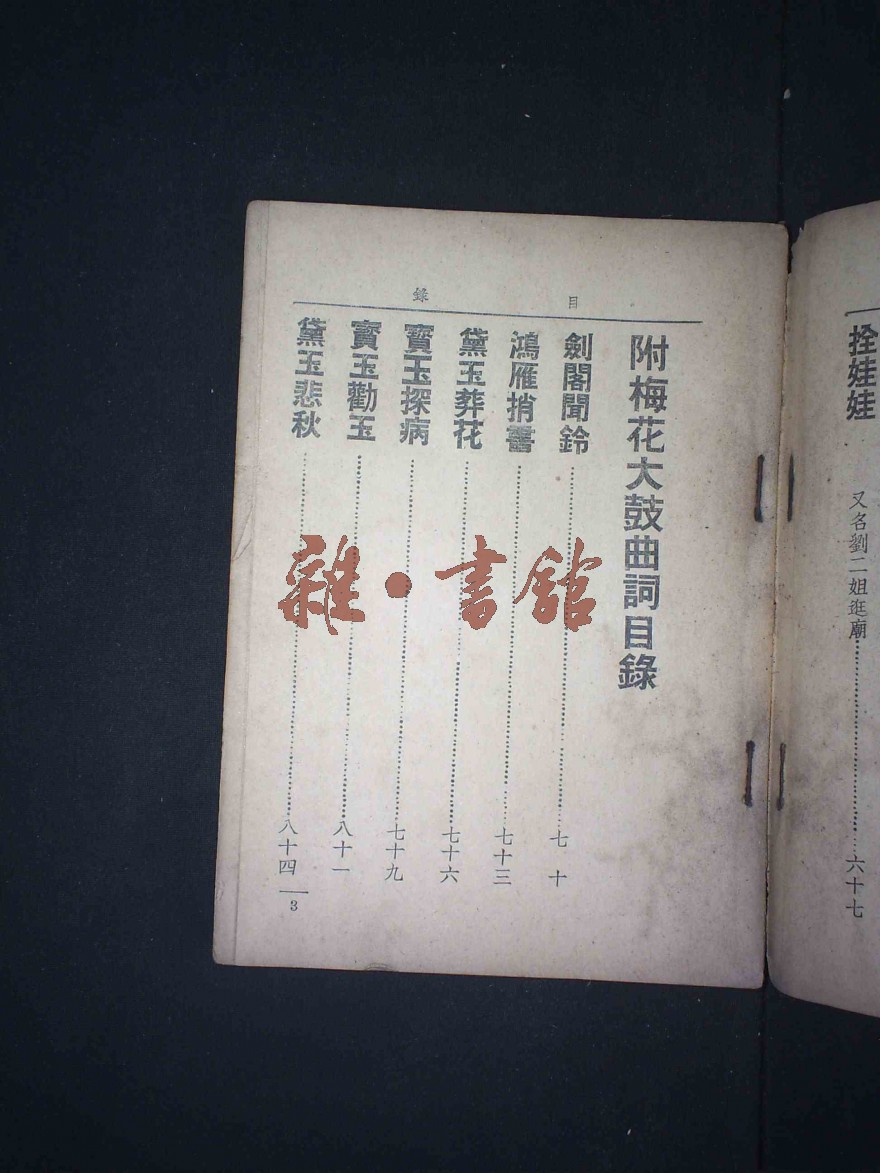 拴娃娃 又名劉二姐逛廟 六十七
目錄
附梅花大鼓曲詞目錄
劍閣聞鈴 七十
鴻雁捎書 七十三
黛玉葬花 七十六
寶玉探病 七十九
寶玉勸玉 八十一
黛玉悲秋 八十四
3
雜·書館